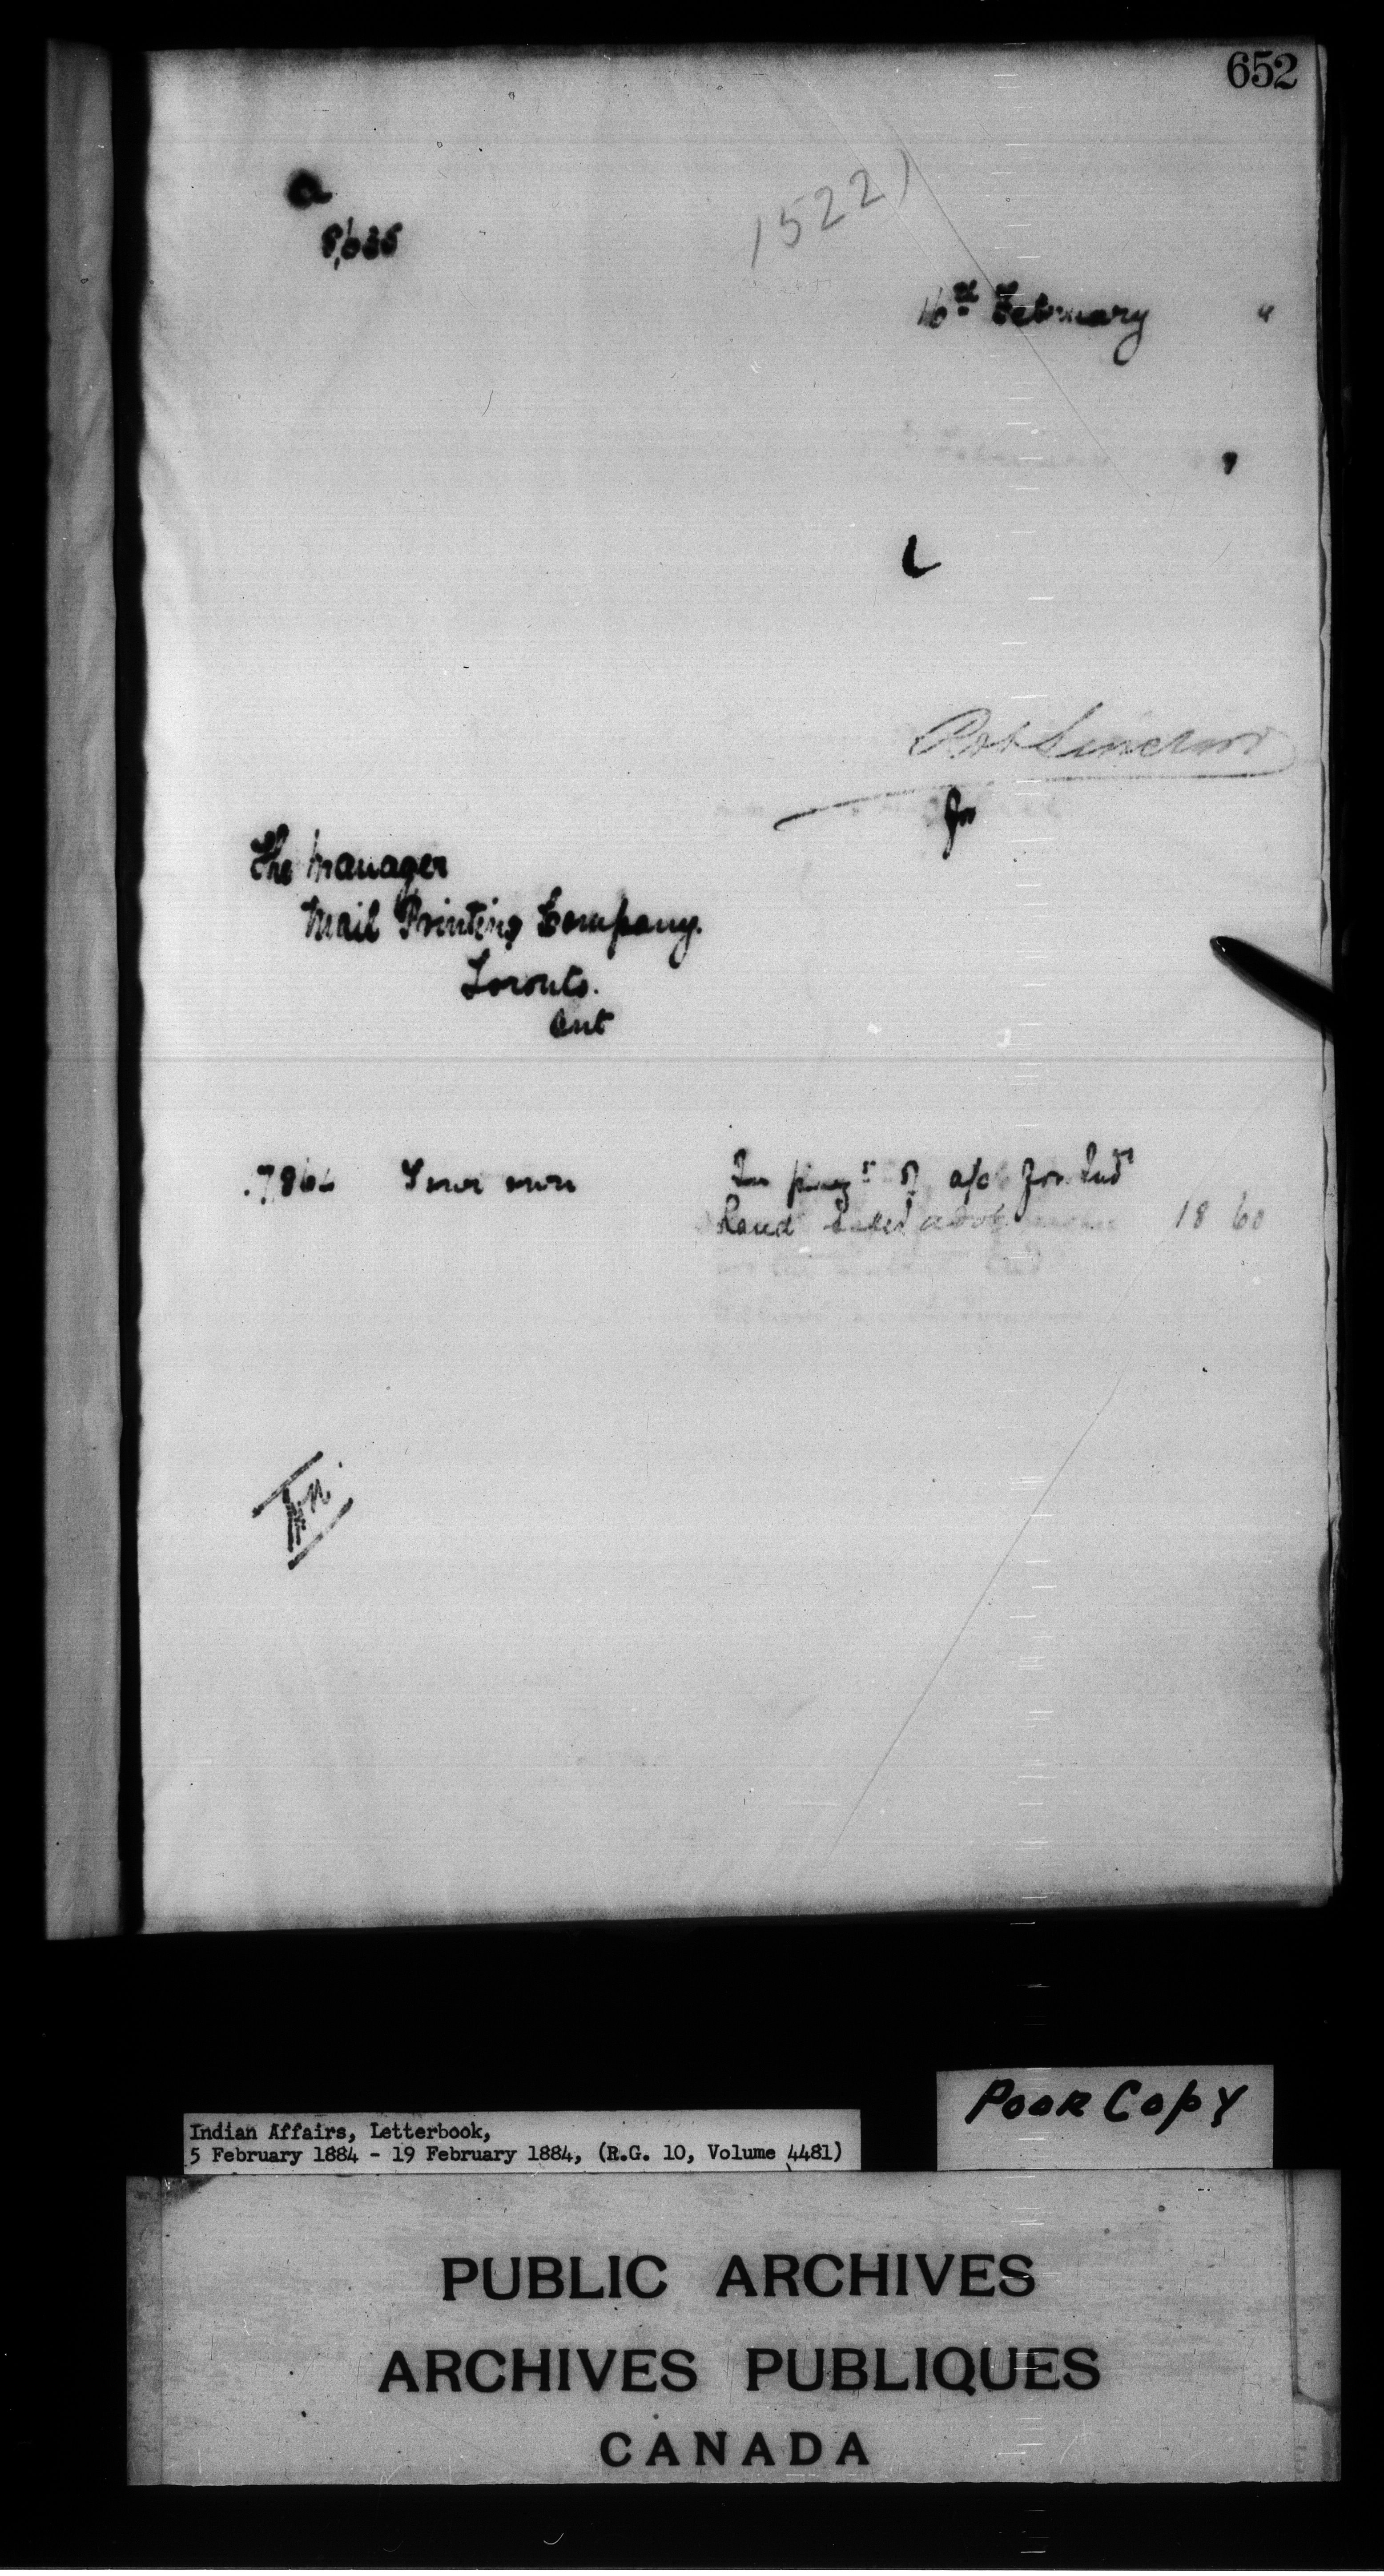 652
a
8,635
15221
16th February "
L
Rob Sinclair
for
The Manager
Mail Printing Company.
Toronto.
Ont
7864 Your own In paymt of a/c for Ind
Land 18 60
Poor Copy
Indian Affairs, Letterbook,
5 February 1884 - 19 February 1884, (R.G. 10, Volume 4481)
PUBLIC ARCHIVES
ARCHIVES PUBLIQUES
CANADA